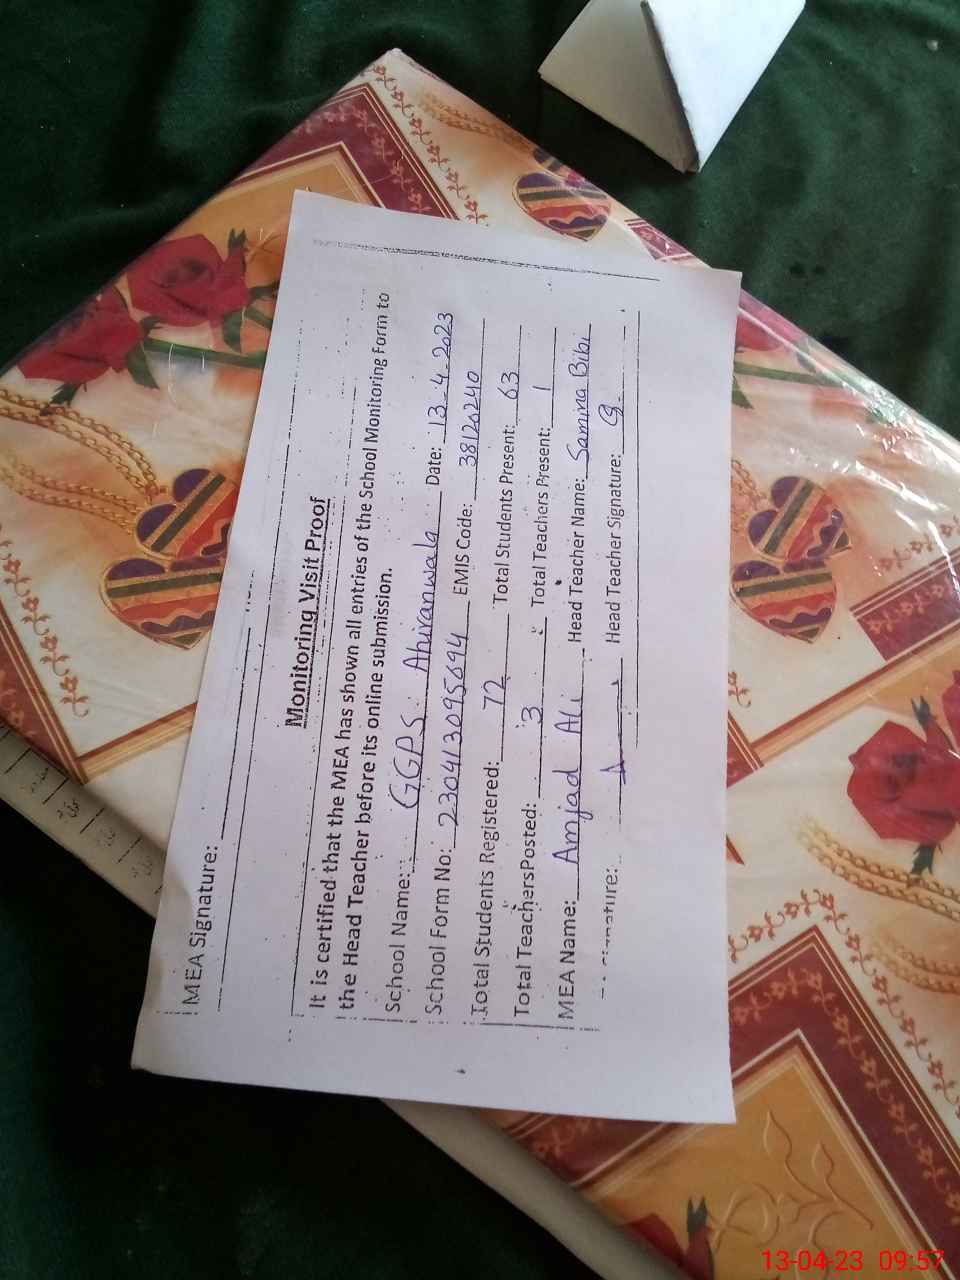 MEA Signature:
Monitoring Visit Proof
It is certified that the MEA has shown all entries of the School Monitoring Form to
the Head Teacher before its online submission.
School Name: GGPS Ahiranwala Date: 13-4-2023
School Form No: 230413095694 EMIS Code: 38120240
Total Students Registered: 72 Total Students Present: 63
Total TeachersPosted: 3 Total Teachers Present: 1
MEA Name: Amjad Ali Head Teacher Name: Samina Bibi
Head Teacher Signature:
13-04-23 09:57